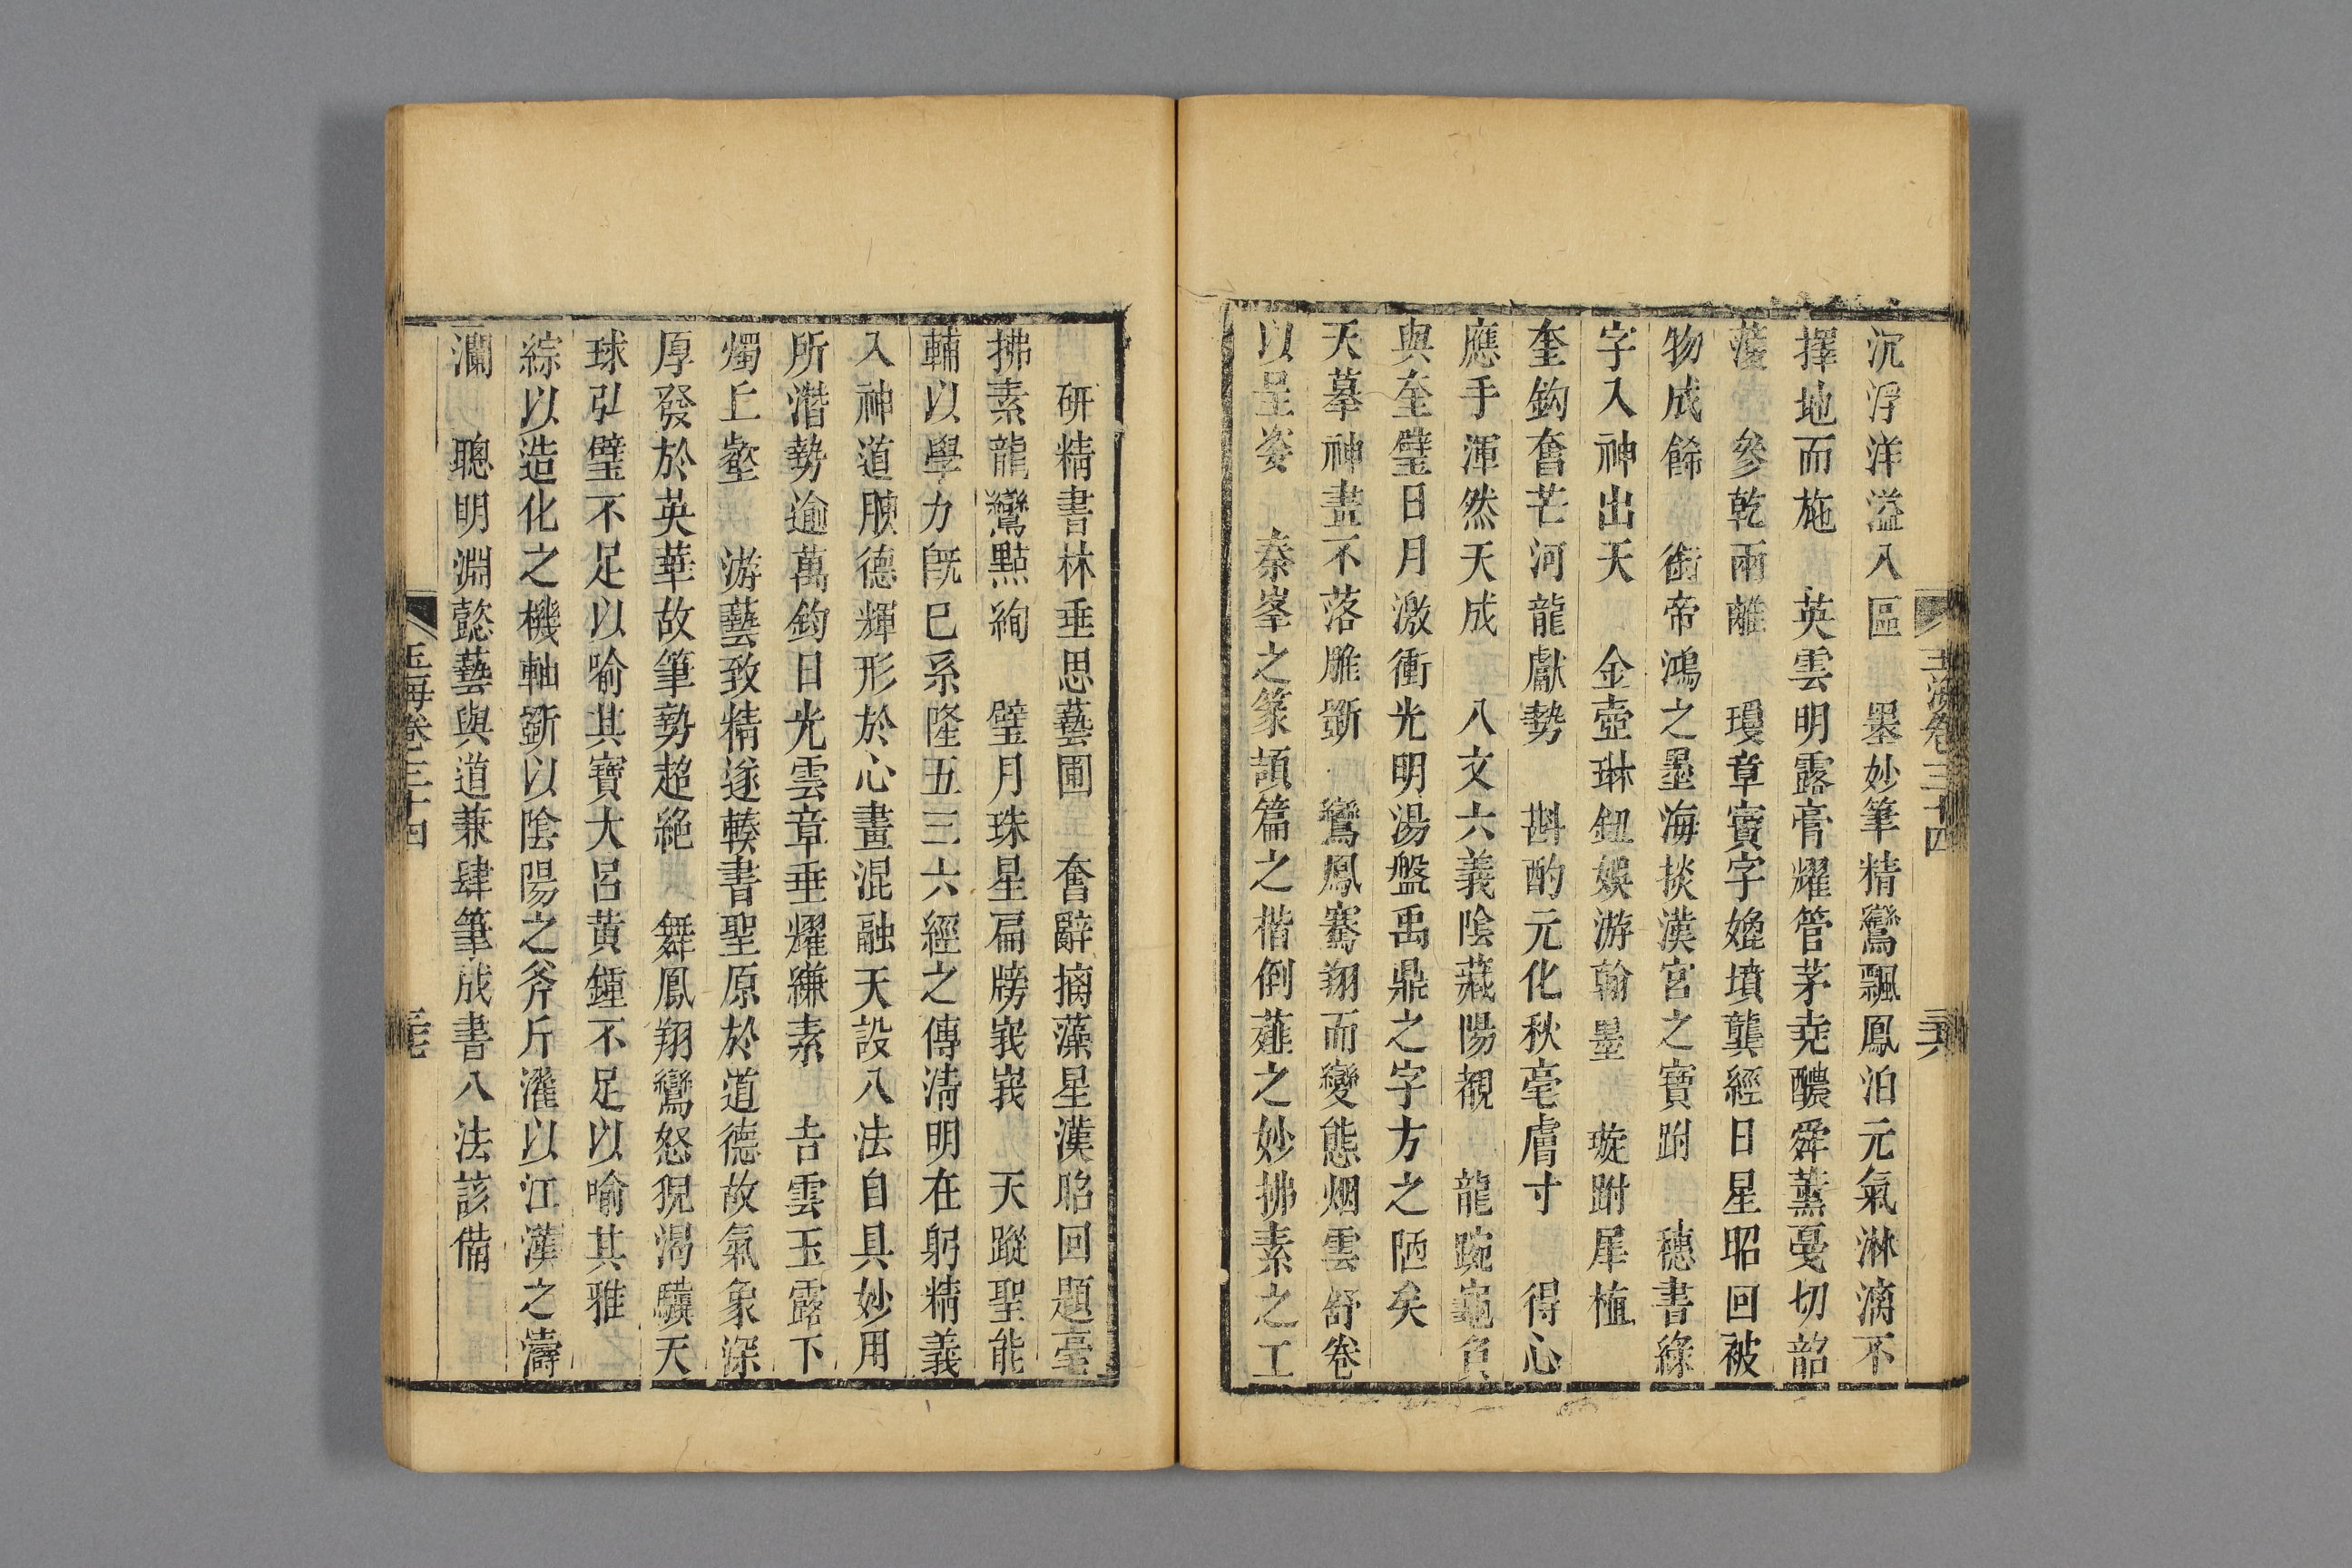 玉海卷三十四
沉浮洋溢入區　墨妙筆精鸞飄鳳泊元氣淋漓不
擇地而施　英雲明露膏耀管茅堯醲舜薰戞切韶
濩　參乾兩離　瓊章寶字媲墳龔經日星昭回被
物成餙　銜帝鴻之墨海掞漢宮之寶跗　穗書綠
字入神出天　金壺琳鈕娛游翰墨　璇跗犀植
奎鈎奮芒河龍獻勢　斟酌元化秋毫膚寸　得心
應手渾然天成　八文六義陰藏陽覩　龍踠龜負
與奎璧日月激衝光明湯盤禹鼎之字方之陋矣
天摹神畫不落雕斲　鸞鳳騫翔而變態烟雲舒卷
以呈姿　秦峯之篆頡篇之楷倒薤之妙拂素之工
研精書林垂思藝圃　奮辭摛藻星漢昭回題毫
拂素龍鸞點絢　璧月珠星扁牓峩峩　天蹤聖能
輔以學力旣巳系隆五三六經之傳淸明在躬精義
入神道腴德輝形於心畫混融天設八法自具妙用
所潛勢逾萬鈞日光雲章垂耀縑素　吉雲玉露下
燭上壑　游藝致精遂輳書聖原於道德故氣象深
厚發於英華故筆勢超絶　舞鳳翔鸞怒猊渴驥天
球弘璧不足以喻其寶大呂黃鍾不足以喻其雅
綜以造化之機軸斵以陰陽之斧斤濯以江漢之濤
瀾　聰明淵懿藝與道兼肆筆成書八法該備
玉海卷三十四